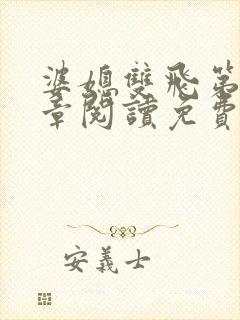 婆媳雙飛第
章閱讀免費
安義士